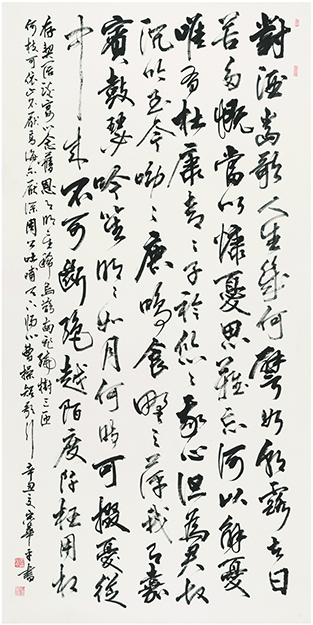 對酒當歌人生幾何譬如朝露去日
苦多慨當以慷憂思難忘何以解憂
唯有杜康青々子衿悠々我心但為君故
沉吟至今呦々鹿鳴食野之苹我有嘉
賓鼓瑟吹笙明々如月何時可掇憂從
中來不可斷絕越陌度阡枉用相
存契闊談宴心念舊恩月明星稀烏鵲南飛繞樹三匝
何枝可依山不厭高海不厭深周公吐哺天下歸心曹操短歌行 辛丑 宋華平書